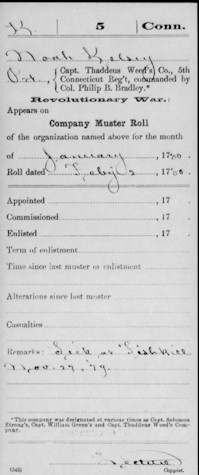 K. 5 Conn.
Noah Kelsey
Pvt., Capt. Thaddeus Weed's Co., 5th
Connecticut Reg't, commanded by
Col. Philip B. Bradley.*
Revolutionary War.
Appears on
Company Muster Roll
of the organization named above for the month
of January, 1780.
Roll dated Feby 2, 1780.
Appointed , 17
Commissioned , 17
Enlisted , 17
Term of enlistment
Time since last muster or enlistment
Alterations since last muster
Casualties
Remarks: Sick at Fishkill
Nov. 27, 79.
*This company was designated at various times as Capt. Solomon
Strong's, Capt. William Green's and Capt. Thaddeus Weed's Com-
pany.
(543) Copyist.